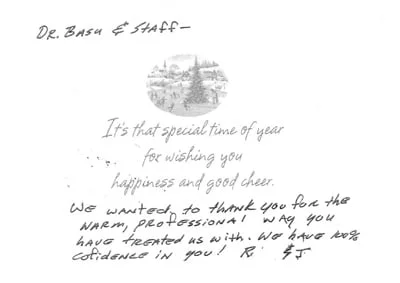 Dr. Basu & Staff—
It's that special time of year
for wishing you
happiness and good cheer.
We wanted to thank you for the
warm, professional way you
have treated us with. We have 100%
cofidence in you! R. & J.